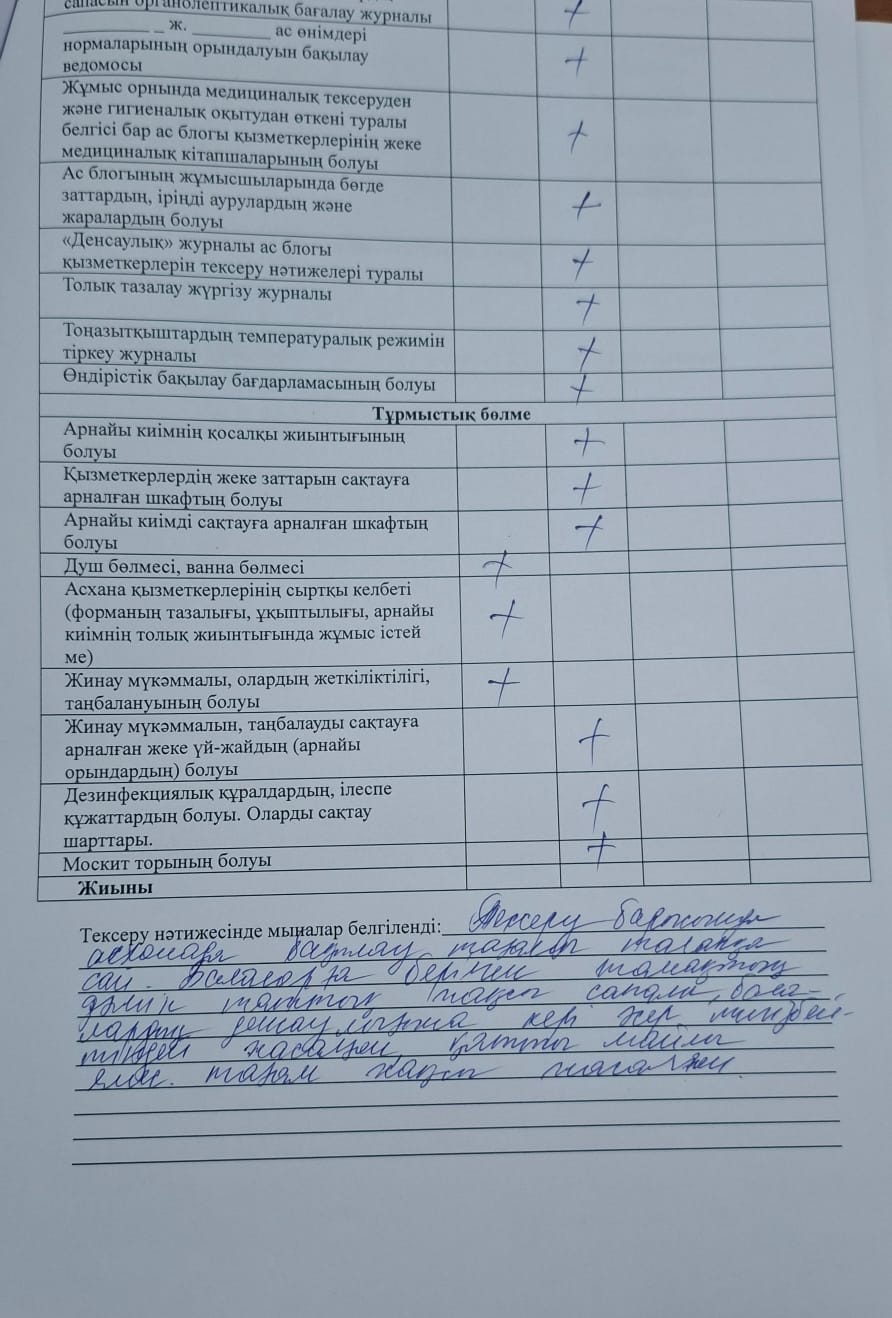 сапасын органолептикалық бағалау журналы +
_________ _ ж. ________ ас өнімдері
нормаларының орындалуын бақылау
ведомосы +
Жұмыс орнында медициналық тексеруден
және гигиеналық оқытудан өткені туралы
белгісі бар ас блогы қызметкерлерінің жеке
медициналық кітапшаларының болуы +
Ас блогының жұмысшыларында бөгде
заттардың, іріңді аурулардың және
жаралардың болуы +
«Денсаулық» журналы ас блогы
қызметкерлерін тексеру нәтижелері туралы +
Толық тазалау жүргізу журналы +
Тоңазытқыштардың температуралық режимін
тіркеу журналы +
Өндірістік бақылау бағдарламасының болуы +
Тұрмыстық бөлме
Арнайы киімнің қосалқы жиынтығының
болуы +
Қызметкерлердің жеке заттарын сақтауға
арналған шкафтың болуы +
Арнайы киімді сақтауға арналған шкафтың
болуы +
Душ бөлмесі, ванна бөлмесі +
Асхана қызметкерлерінің сыртқы келбеті
(форманың тазалығы, ұқыптылығы, арнайы
киімнің толық жиынтығында жұмыс істей
ме) +
Жинау мүкәммалы, олардың жеткіліктілігі,
таңбалануының болуы +
Жинау мүкәммалын, таңбалауды сақтауға
арналған жеке үй-жайдың (арнайы
орындардың) болуы +
Дезинфекциялық құралдардың, ілеспе
құжаттардың болуы. Оларды сақтау
шарттары. +
Москит торының болуы +
Жиыны
Тексеру нәтижесінде мыналар белгіленді: Тексеру барысында
тазалығы талапқа
сай. Балаларға берілген тамақтың
жақсы сапалы, бала-
лардың денсаулығына кері әсер тигізбей-
жасалған, майлы
емес. тағам жақсы жасалған.